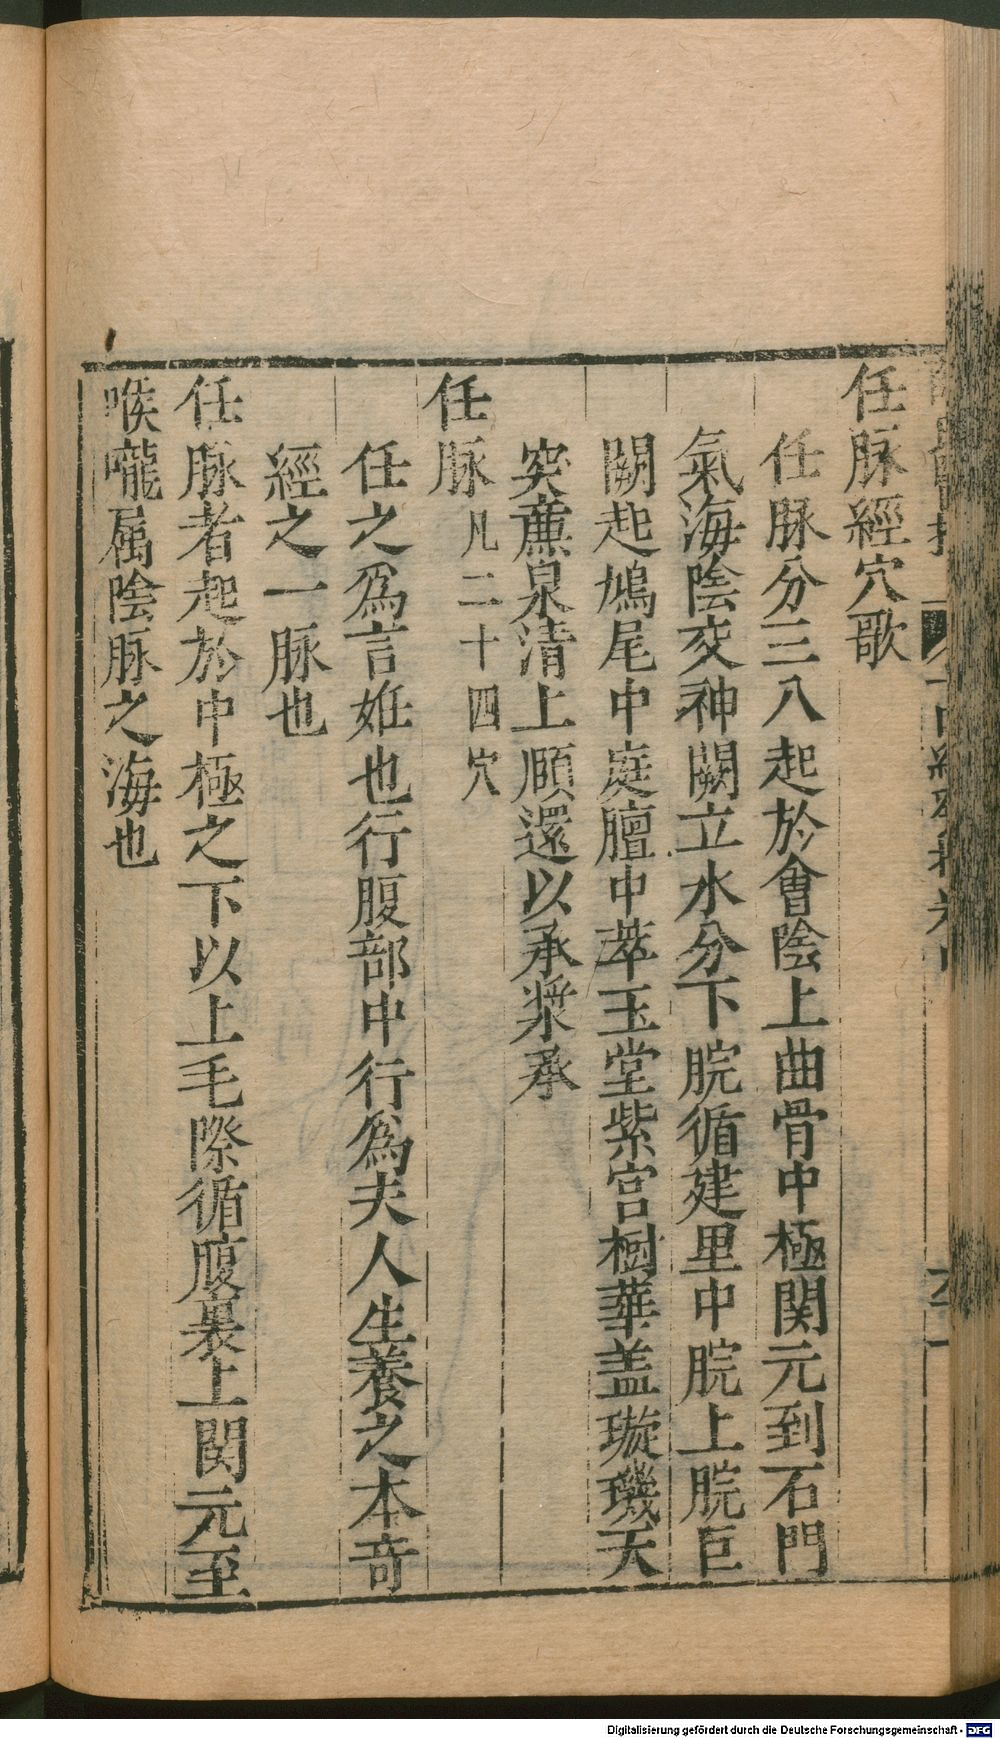 任脉經穴歌
任脉分三八起於會陰上曲骨中極関元到石門
氣海陰交神闕立水分下脘循建里中脘上脘巨
闕起鳩尾中庭膻中萃玉堂紫宫樹華盖璇璣天
突亷泉清上頤還以承漿承
任脉凡二十四穴
任之爲言妊也行腹部中行爲夫人生養之本奇
經之一脉也
任脉者起於中極之下以上毛際循腹裏上関元至
喉嚨属陰脉之海也
Digitalisierung gefördert durch die Deutsche Forschungsgemeinschaft - DFG